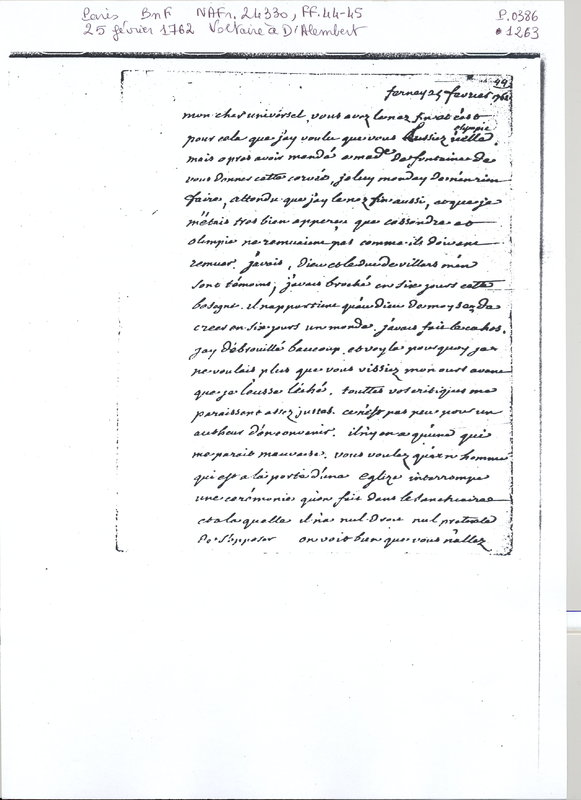 Paris, BnF NAFr. 24330, ff. 44-45
P.0386
25 février 1762 Voltaire à D'Alembert
1263
44
ferney 25 fevrier 1762
mon cher universel, vous avez le nez fin et c'est
olympie
pour cela que jay voulu que vous lussiez
mais apres avoir mandé a made de fontaine de
vous donner cette corvée, je luy manday de n'en rien
faire, attendu que jay le nez fin aussi, et que je
m'étais tres bien apperçu que cassandre et
olimpie ne remuaient pas comme ils doivent
remuer. j'avais, Dieu et le duc de villars m'en
sont témoins, j'avais broché en six jours cette
besogne. il n'appartient qu'au dieu de moyse de
creer en six jours un monde. j'avais fait le cahos.
jay débrouillé baucoup. et voyla pourquoy je
ne voulais plus que vous vissiez mon ours avant
que je l'eusse léché. touttes vos critiques me
paraissent assez justes. ce n'est pas peu pour un
autheur d'en convenir. il n'y en a qu'une qui
me parait mauvaise. vous voulez qu'un homme
qui est a la porte d'une eglise interrompe
une cerémonie qu'on fait dans le sanctuaire
et a la quelle il n'a nul droit nul pretexte
de s'opposer on voit bien que vous n'allez